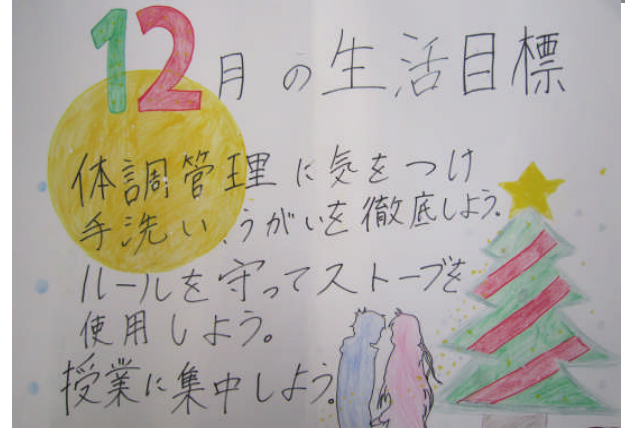 12月の生活目標
体調管理に気をつけ
手洗い、うがいを徹底しよう。
ルールを守ってストーブを
使用しよう。
授業に集中しよう。